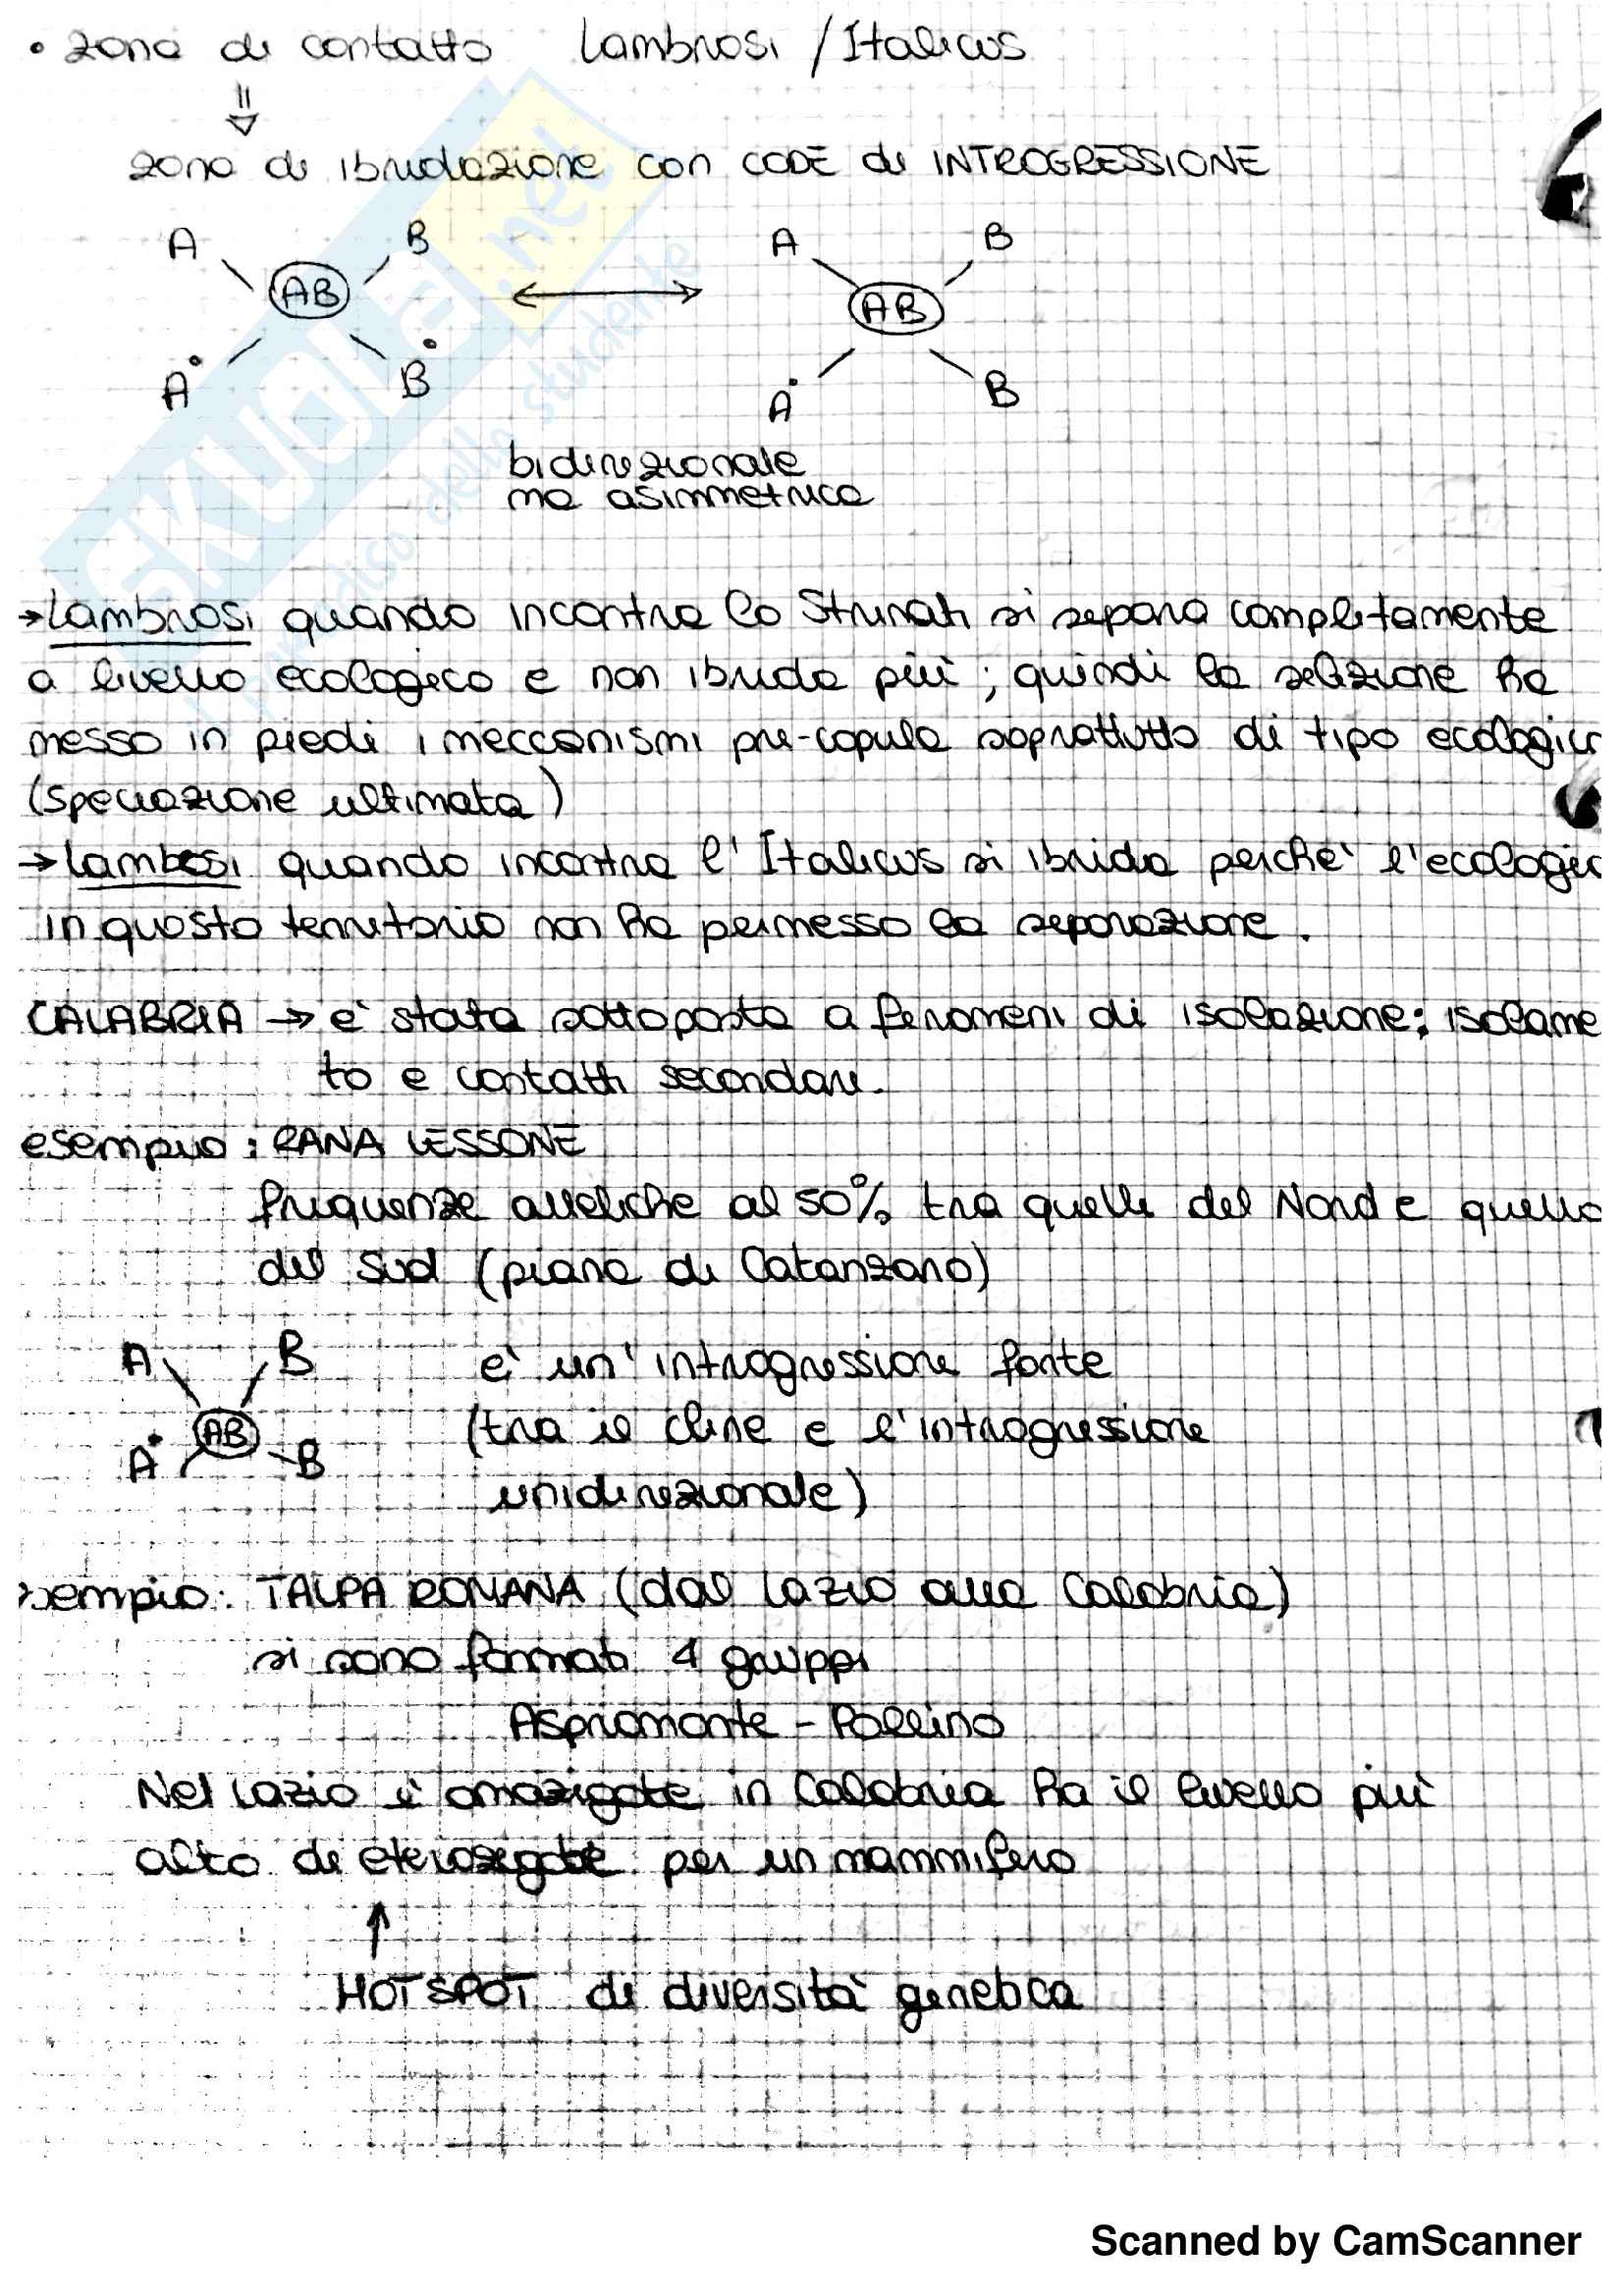 • zona di contatto Lambrosi / Italicus
⇓
zona di ibridazione con CODE di INTROGRESSIONE
A B A B
AB ⟷ AB
A• B• A• B
bidirezionale
ma asimmetrica
→ Lambrosi quando incontra lo Strinati si separa completamente
a livello ecologico e non ibrida più; quindi la selezione ha
messo in piedi i meccanismi pre-copula soprattutto di tipo ecologic
(speciazione ultimata)
→ Lambosi quando incontra l'Italicus si ibrida perchè l'ecologic
in questo territorio non ha permesso la separazione.
CALABRIA → è stata sottoposta a fenomeni di isolazione; isolame
to e contatti secondari.
esempio: RANA LESSONE
frequenze alleliche al 50% tra quelle del Nord e quelle
del Sud (piana di Catanzaro)
A B è un'introgressione forte
AB (tra il cline e l'introgressione
A• B unidirezionale)
esempio: TALPA ROMANA (dal Lazio alla Calabria)
si sono formati 4 gruppi
Aspromonte - Pollino
Nel Lazio è omozigote in Calabria ha il livello più
alto di eterozigote per un mammifero
↑
HOT SPOT di diversità genetica
SKUOLA.net
paradiso dello studente
Scanned by CamScanner